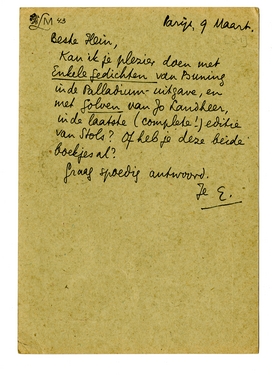 M 43
Parijs, 9 Maart.
Beste Hein,
Kan ik je plezier doen met
Enkele Gedichten van Buning
in de Palladium-uitgave, en
met Golven van Jo Landheer,
in de laatste (complete!) editie
van Stols? Of heb je deze beide
boekjes al?
Graag spoedig antwoord.
Je E.